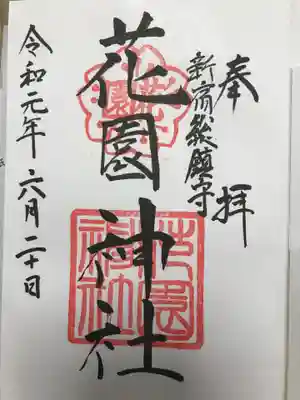 奉拝
新宿総鎮守
花園神社
令和元年六月二十日
花園神社